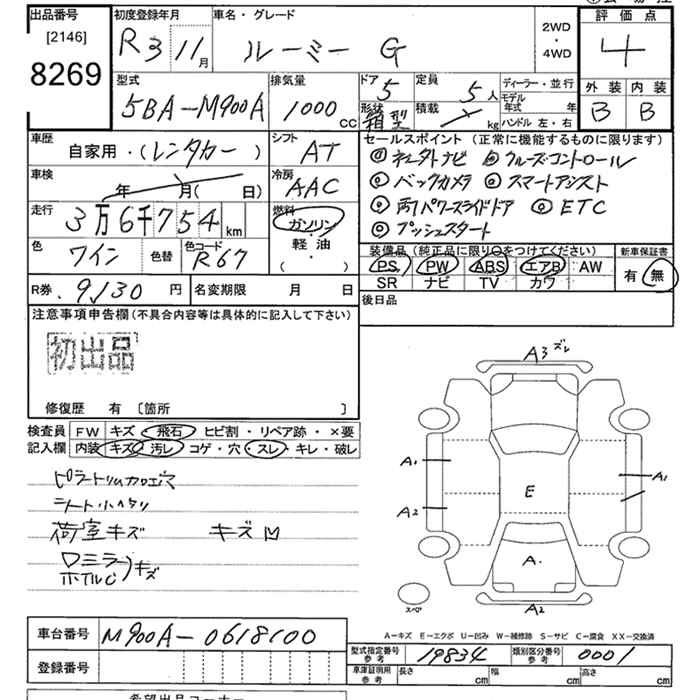 出品番号
[2146]
8269
初度登録年月
R3 11月
車名・グレード
ルーミー G
2WD
・
4WD
評価点
4
外装 内装
B B
型式
5BA-M900A
排気量
1000 cc
ドア 5
形状 箱型
定員 5人
積載 kg
ディーラー・並行
モデル年式 年
ハンドル 左・右
車歴
自家用・(レンタカー)
シフト
AT
車検
年 月( 日)
冷房
AAC
走行
3万6千754km
燃料
ガソリン
軽油
( ・ )
色
ワイン
色替
色コード
R67
セールスポイント(正常に機能するものに限ります)
◎ キュタトナビ ◎ クルーズコントロール
◎ バックカメラ ◎ スマートアシスト
◎ 両パワースライドドア ◎ ETC
◎ プッシュスタート
装備品(純正品に限り○をつけてください)
PS PW ABS エアB AW
SR ナビ TV カワ
新車保証書
有・無
R券 9,130円
名変期限 月 日
後日品
注意事項申告欄(不具合内容等は具体的に記入して下さい)
初出品
修復歴 有 〔箇所 〕
検査員記入欄
FW キズ・飛石・ヒビ割・リペア跡・×要
内装 キズ・汚レ・コゲ・穴・スレ・キレ・破レ
ピラートリム加工穴
シート小ヘタリ
荷室キズ キズ凹
ロミラー
ホイルC)キズ
A3 ズレ
A1
A2
E
A1
A.
A2
スペア
A-キズ E-エクボ U-凹み W-補修跡 S-サビ C-腐食 XX-交換済
車台番号
M900A-0618100
登録番号
型式指定番号 参考 19834
類別区分番号 参考 0001
車庫証明用 参考 長さ cm 幅 cm 高さ cm
希望出品コーナー